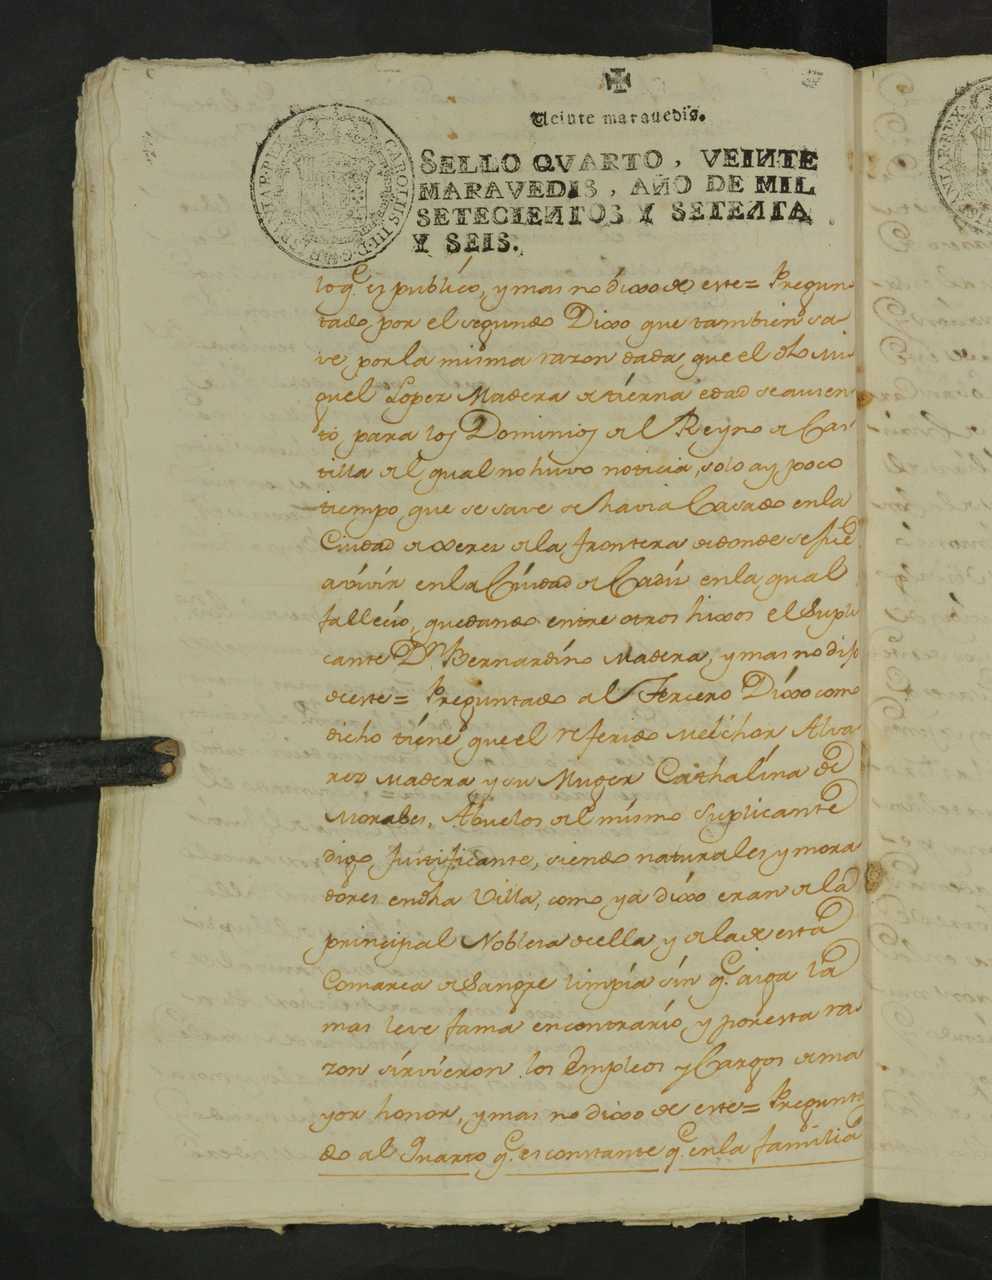 Veinte maravedis.
SELLO QVARTO, VEINTE
MARAVEDIS, AÑO DE MIL
SETECIENTOS Y SETENTA
Y SEIS.
CAROLUS III D G HISPANIAR REX
lo q.e es publico, y mas no dixo de este= Pregun
tado, por el segundo Dixo que tambien sa
ve por la misma razon dada que el dho Mi
guel Lopez Madera de tierna edad se ausen
tò, para los Dominios del Reyno de Cas
tilla del qual no huvo noticia, solo ay poco
tiempo que se save se havia Casado en la
Ciudad de Xeres de la frontera de donde se fue
a vivir en la Ciudad de Cadiz en la qual
falleciò, quedando entre otros hixos el Supli
cante Dn. Bernardino Madera, y mas no dijo
de este= Preguntado al Tercero Dixo como
dicho tiene que el referido Melchor Alva
rez Madera y su Muger Cathalina de
Morales, Abuelos del mismo Suplicante
digo, Justificante, siendo naturales y mora
dores en dha Villa, como ya dixo eran de la
principal Nobleza de ella, y de la de esta
Comarca de Sangre limpia sin q.e aiga la
mas leve fama en contrario, y por esta ra
zon sirvieron los Empleos y Cargos de ma
yor honor, y mas no dixo de este= Pregunta
do al Quarto q.e es constante q.e en la familia